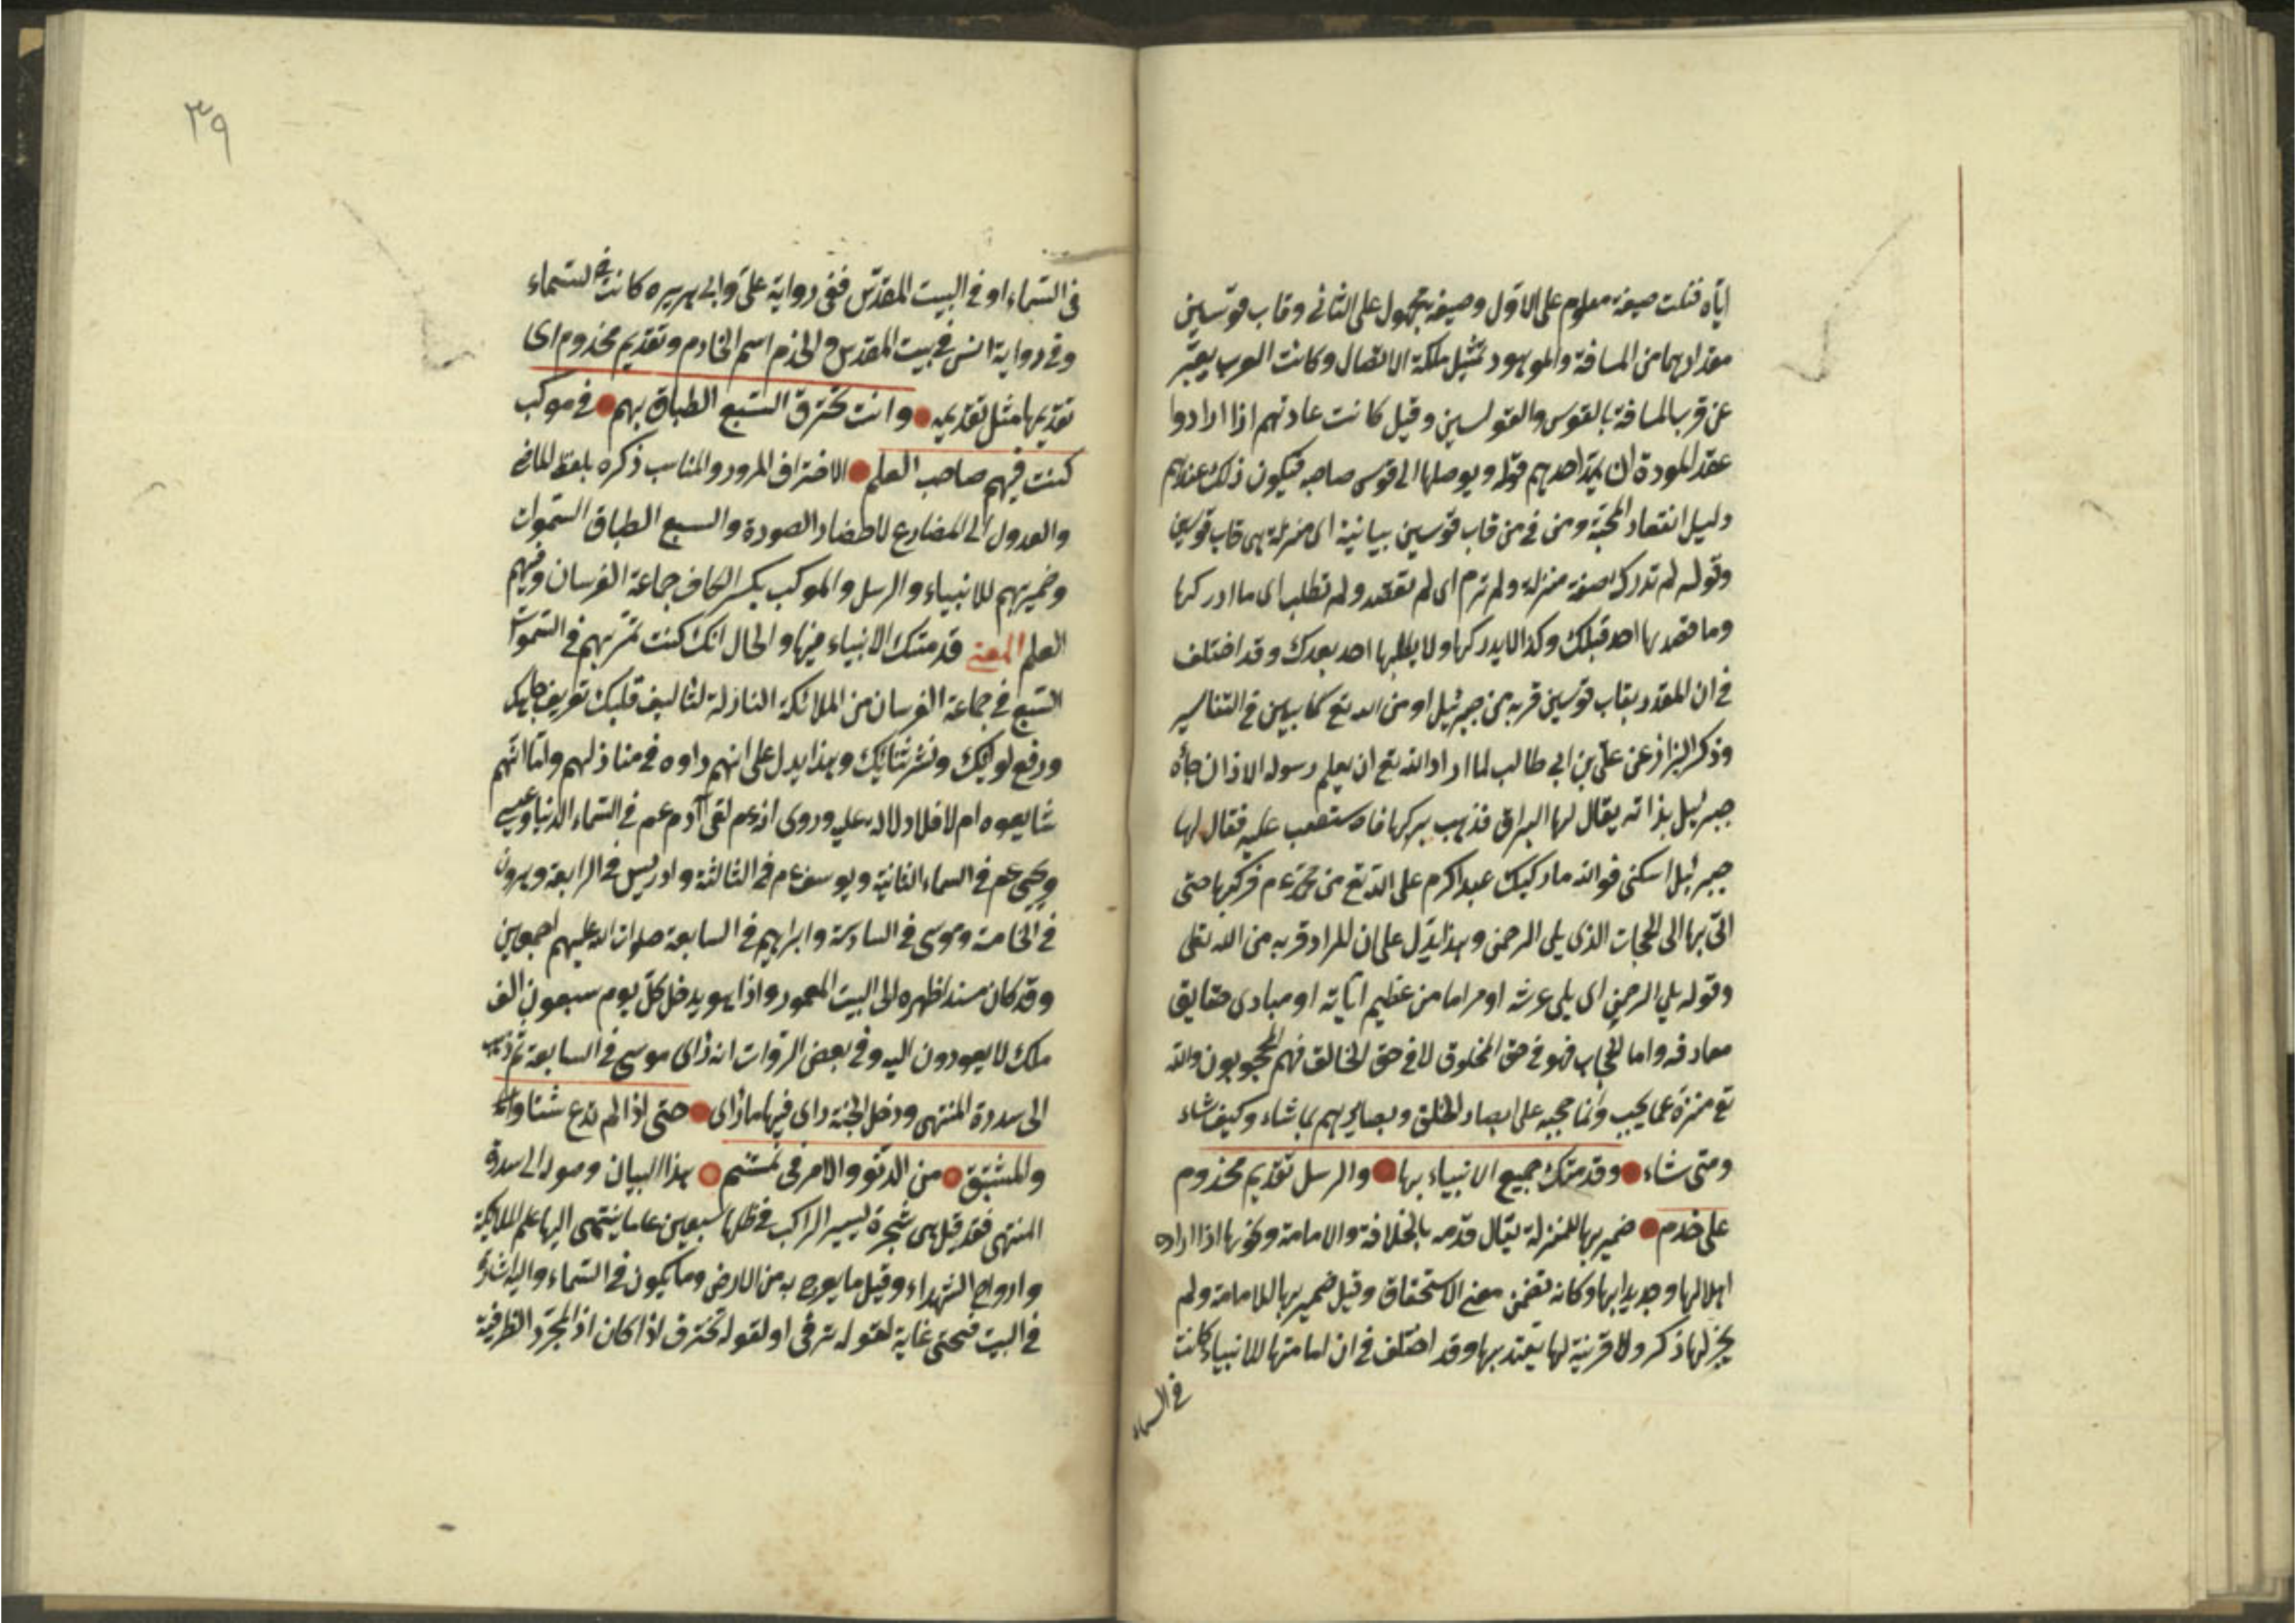 ایاه فنلت صیغة معلوم على الاول وصیغة مجهول على الثانى وقاب قوسین
مقدارهما من المسافة والموهود تمثیل ملكة الاتصال وكانت العرب یعبّر
عن قرب المسافة بالقوس والقوسین وقیل كانت عادتهم اذا ارادوا
عقد المودة ان یمدّ احدهم قوسه ویوصلها الى قوس صاحبه فیكون ذلك عندهم
دلیل انعقاد المحبّة ومن فى من قاب قوسین بیانیة اى منزلة هى قاب قوسین
وقوله لم تدرك صفة منزلة ولم ترم اى لم تقصد ولم تطلب اى ما ادركها
وما قصدها احد قبلك وكذا لا یدركها ولا یطلبها احد بعدك وقد اختلف
فى ان المقدر بقاب قوسین قربه من جبرئیل او من الله تع كما بین فى التفاسیر
وذكر البزاز عن علىّ بن ابى طالب لما اراد الله تع ان یعلم رسوله الاذان جاءه
جبرئیل بذاته یقال لها البراق فذهب یركبها فاستصعب علیه فقال لها
جبرئیل اسكنى فوالله ما ركبك عبد اكرم على الله تع من محمّد عم فركبها حتى
اتى بها الى الحجاب الذى یلى الرحمن وهذا یدل على ان المراد قربه من الله تعلى
وقوله یلى الرحمن اى یلى عرشه او امرا ما من عظیم ایاته او مبادى حقایق
معارفه واما الحجاب فهو فى حق المخلوق لا فى حق الخالق فهم المحجوبون والله
تع منزه عما یحجب وانما حجبه على ابصار الخلق وبصایرهم بما شاء وكیف شاء
ومتى شاء وقدمتك جمیع الانبیاء بها والرسل تقدیم مخدوم
على خدم ضمیر بها للمنزلة یقال قدمه بالخلافة والامامة ونحوها اذا اراده
اهلا لها وجدیرا بها وكانه تضمن معنى الاستحقاق وقیل ضمیر بها للامامة ولم
یجز لها ذكر ولا قرینة لها یعتد بها وقد اختلف فى ان امامتها للانبیاء كانت
فى السماء
٣٩
فى السّماء او فى البیت المقدّس ففى روایة علىّ وابى هریره كانت فى السّماء
وفى روایة انس فى بیت المقدس والخدم اسم الخادم وتقدیم مخدوم اى
تقدیما مثل تقدیمه وانت تخترق السّبع الطباق بهم فى موكب
كنت فیهم صاحب العلم الاختراق المرور والمناسب ذكره بلفظ الماضى
والعدول الى المضارع لاحضار الصورة والسبع الطباق السّموات
وضمیر بهم للانبیاء والرسل والموكب بكسر الكاف جماعة الفرسان وفیهم
العلم المعنى قدمتك الانبیاء فیها والحال انك كنت تمرّ بهم فى السّموات
السّبع فى جماعة الفرسان من الملائكة النازلة لتالیف قلبك تعریف
ورفع لوائك ونشر ثنائك وهذا یدل على انهم راوه فى منازلهم وامّا انّهم
شایعوه ام لا فلا دلالة علیه وروى انه عم لقى آدم عم فى السّماء الدنیا وعیسى
ویحیى عم فى السماء الثانیة ویوسف عم فى الثالثة وادریس فى الرابعة وهرون
فى الخامسة وموسى فى السادسة وابراهیم فى السابعة صلوات الله علیهم اجمعین
وقد كان مسندا ظهره الى البیت المعمور واذا هو یدخل كلّ یوم سبعون الف
ملك لا یعودون الیه وفى بعض الروات انه راى موسى فى السابعة ثم ذهب
الى سدرة المنتهى ودخل الجنة راى فیها ما راى حتى اذا لم تدع شئاوا
والمستبق من الدنوّ والامر فى لمستنم هذا البیان وصوله الى سدرة
المنتهى فقد قیل هى شجرة یسیر الراكب فى ظلها سبعین عاما ینتهى الیها علم الملائكة
وارواح الشهداء وقیل ما یعرج به من الارض وما یكون فى السّماء والیه اشار
فى البیت فحتى غایة لقوله ترقى او لقوله تخترق اذا كان اذ المجرّد الظرفیة